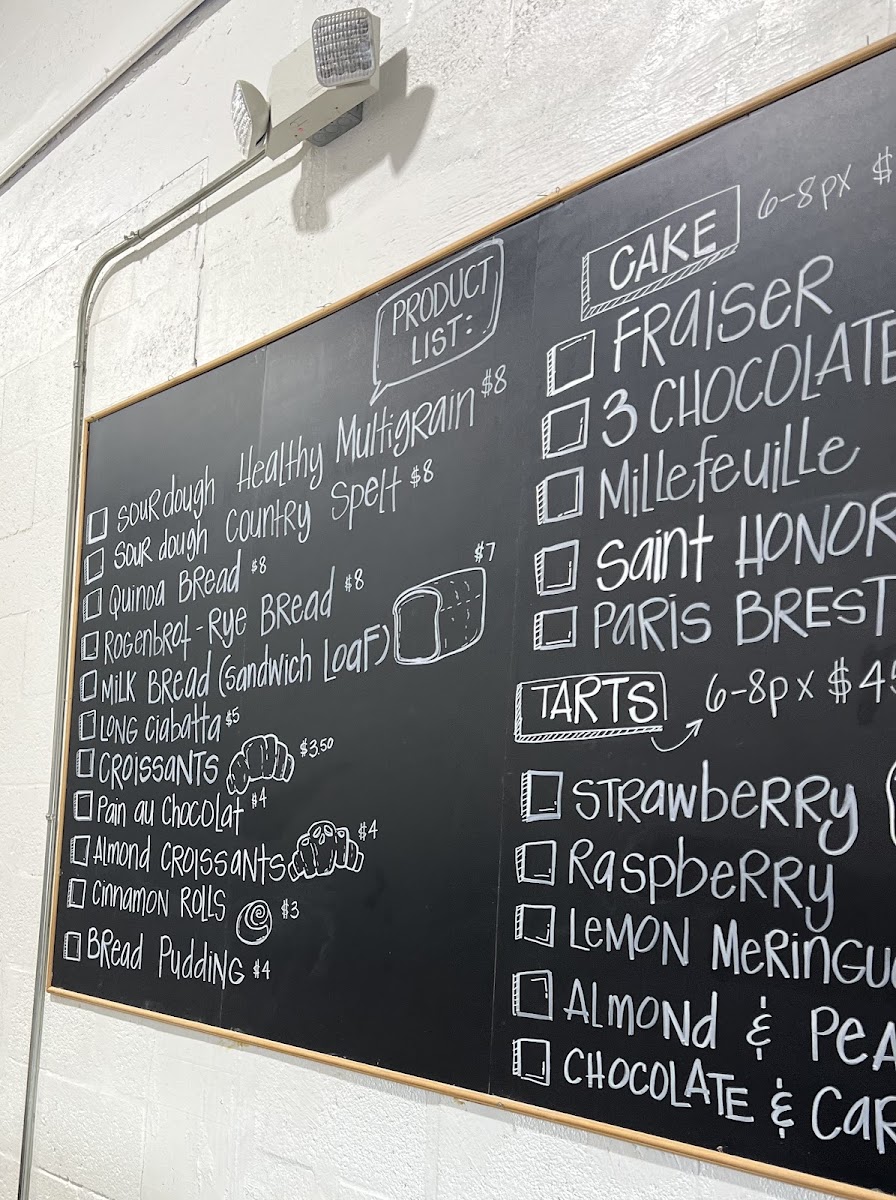 PRODUCT
LIST:
Sourdough Healthy Multigrain $8
Sour dough Country Spelt $8
Quinoa Bread $8
Rogenbrot-Rye Bread $8
Milk Bread (Sandwich Loaf) $7
Long Ciabatta $5
Croissants $3.50
Pain au Chocolat $4
Almond Croissants $4
Cinnamon Rolls $3
Bread Pudding $4
CAKE 6-8px $
Fraiser
3 Chocolate
Millefeuille
Saint Honor
Paris Brest
TARTS 6-8px $4
Strawberry
Raspberry
Lemon Meringu
Almond & Pea
Chocolate & Car